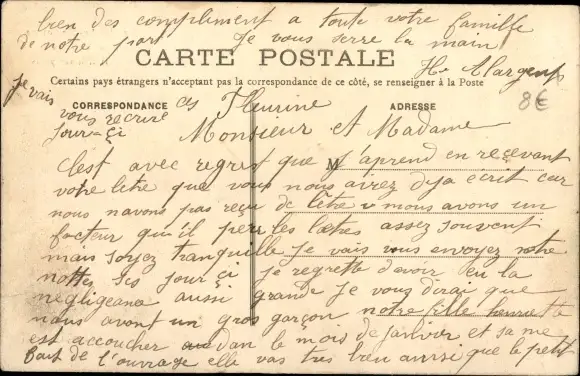 bien des compliment a toute votre famille
de notre part Je vous serre la main
CARTE POSTALE
Certains pays étrangers n'acceptent pas la correspondance de ce côté, se renseigner à la Poste
8€
je vais
vous recrire
jour-çi
CORRESPONDANCE
ADRESSE
Fleurine
Monsieur et Madame
M
C'est avec regret que j'aprend en reçevant
votre letre que vous nous avez deja ecrit car
nous navons pas reçu de letre nous avons un
facteur qu'il pers les lettres assez souvent
mais soyez tranquille je vais vous envoyez votre
notte ses jour çi je regrette d'avoir eu la
negligeance aussi grande Je vous dirai que
nous avont un gros garçon notre fille henriette
est accoucher dan le mois de janvier et sa me
fait de l'ouvrage elle vas tres bien ainsi que le petit